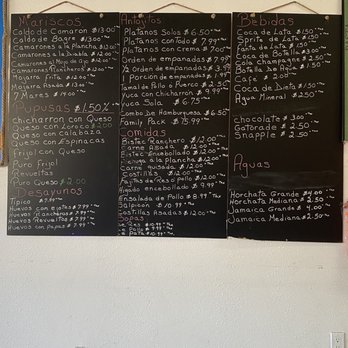 Mariscos
Caldo de Camaron $13.00
Caldo de Bagre $13.00
Camarones a la Plancha $12.00
Camarones a la Diabla $12.00
Camarones al Mojo de Ajo $12.00
Camarones Ranchero $12.00
Mojarra frita $12.00
Mojarra Asada $13.00
7 Mares $14.00
Pupusas $1.50
Chicharron con Queso
Queso con Loroco $2.00
Queso con calabaza
Queso con Espinacas
Frijol con Queso
Puro Frijol
Revueltas
Puro Queso $2.00
Desayunos
Tipico $7.99
Huevos con ejotes $7.99
Huevos Rancheros $7.99
Huevos Revueltos $7.99
Huevos con papas $7.99
Antojitos
Platanos Solos $6.50
Platanos con Todo $7.99
Platanos con Crema $7.00
Orden de empanadas $7.99
½ Orden de empanadas $3.99
1 Porcion de empanada $1.99
Tamal de Pollo o Puerco $2.50
Yuca con chicharron $9.99
Yuca Sola $6.75
Combo de Hamburguesa $6.50
Family Pack
Comidas
Bistec Ranchero $12.00
Carne Asada $12.00
Bistec Encebollado $12.00
a la Plancha $12.00
Carne Guisada $12.00
Costillas $12.00
Fajitas de Res o pollo $12.00
Higado encebollado $9.99
Ensalada de Pollo $8.99
Salpicon $10.99
Costillas Asadas $12.00
Sopas
de Res
de Pollo
de Pata $10.99
Bebidas
Coca de Lata $1.50
Sprite de Lata $1.50
Fanta de Lata $1.50
Coca de Botella $3.00
Cola Champagne $2.50
Botella de Agua $1.50
Cafe $2.00
Coca de Dieta $1.50
Agua Mineral $2.50
chocolate $3.00
Gatorade $2.50
Snapple $2.50
Aguas
Horchata Grande $4.00
Horchata Mediana $2.50
Jamaica Grande $4.00
Jamaica Mediana $2.50